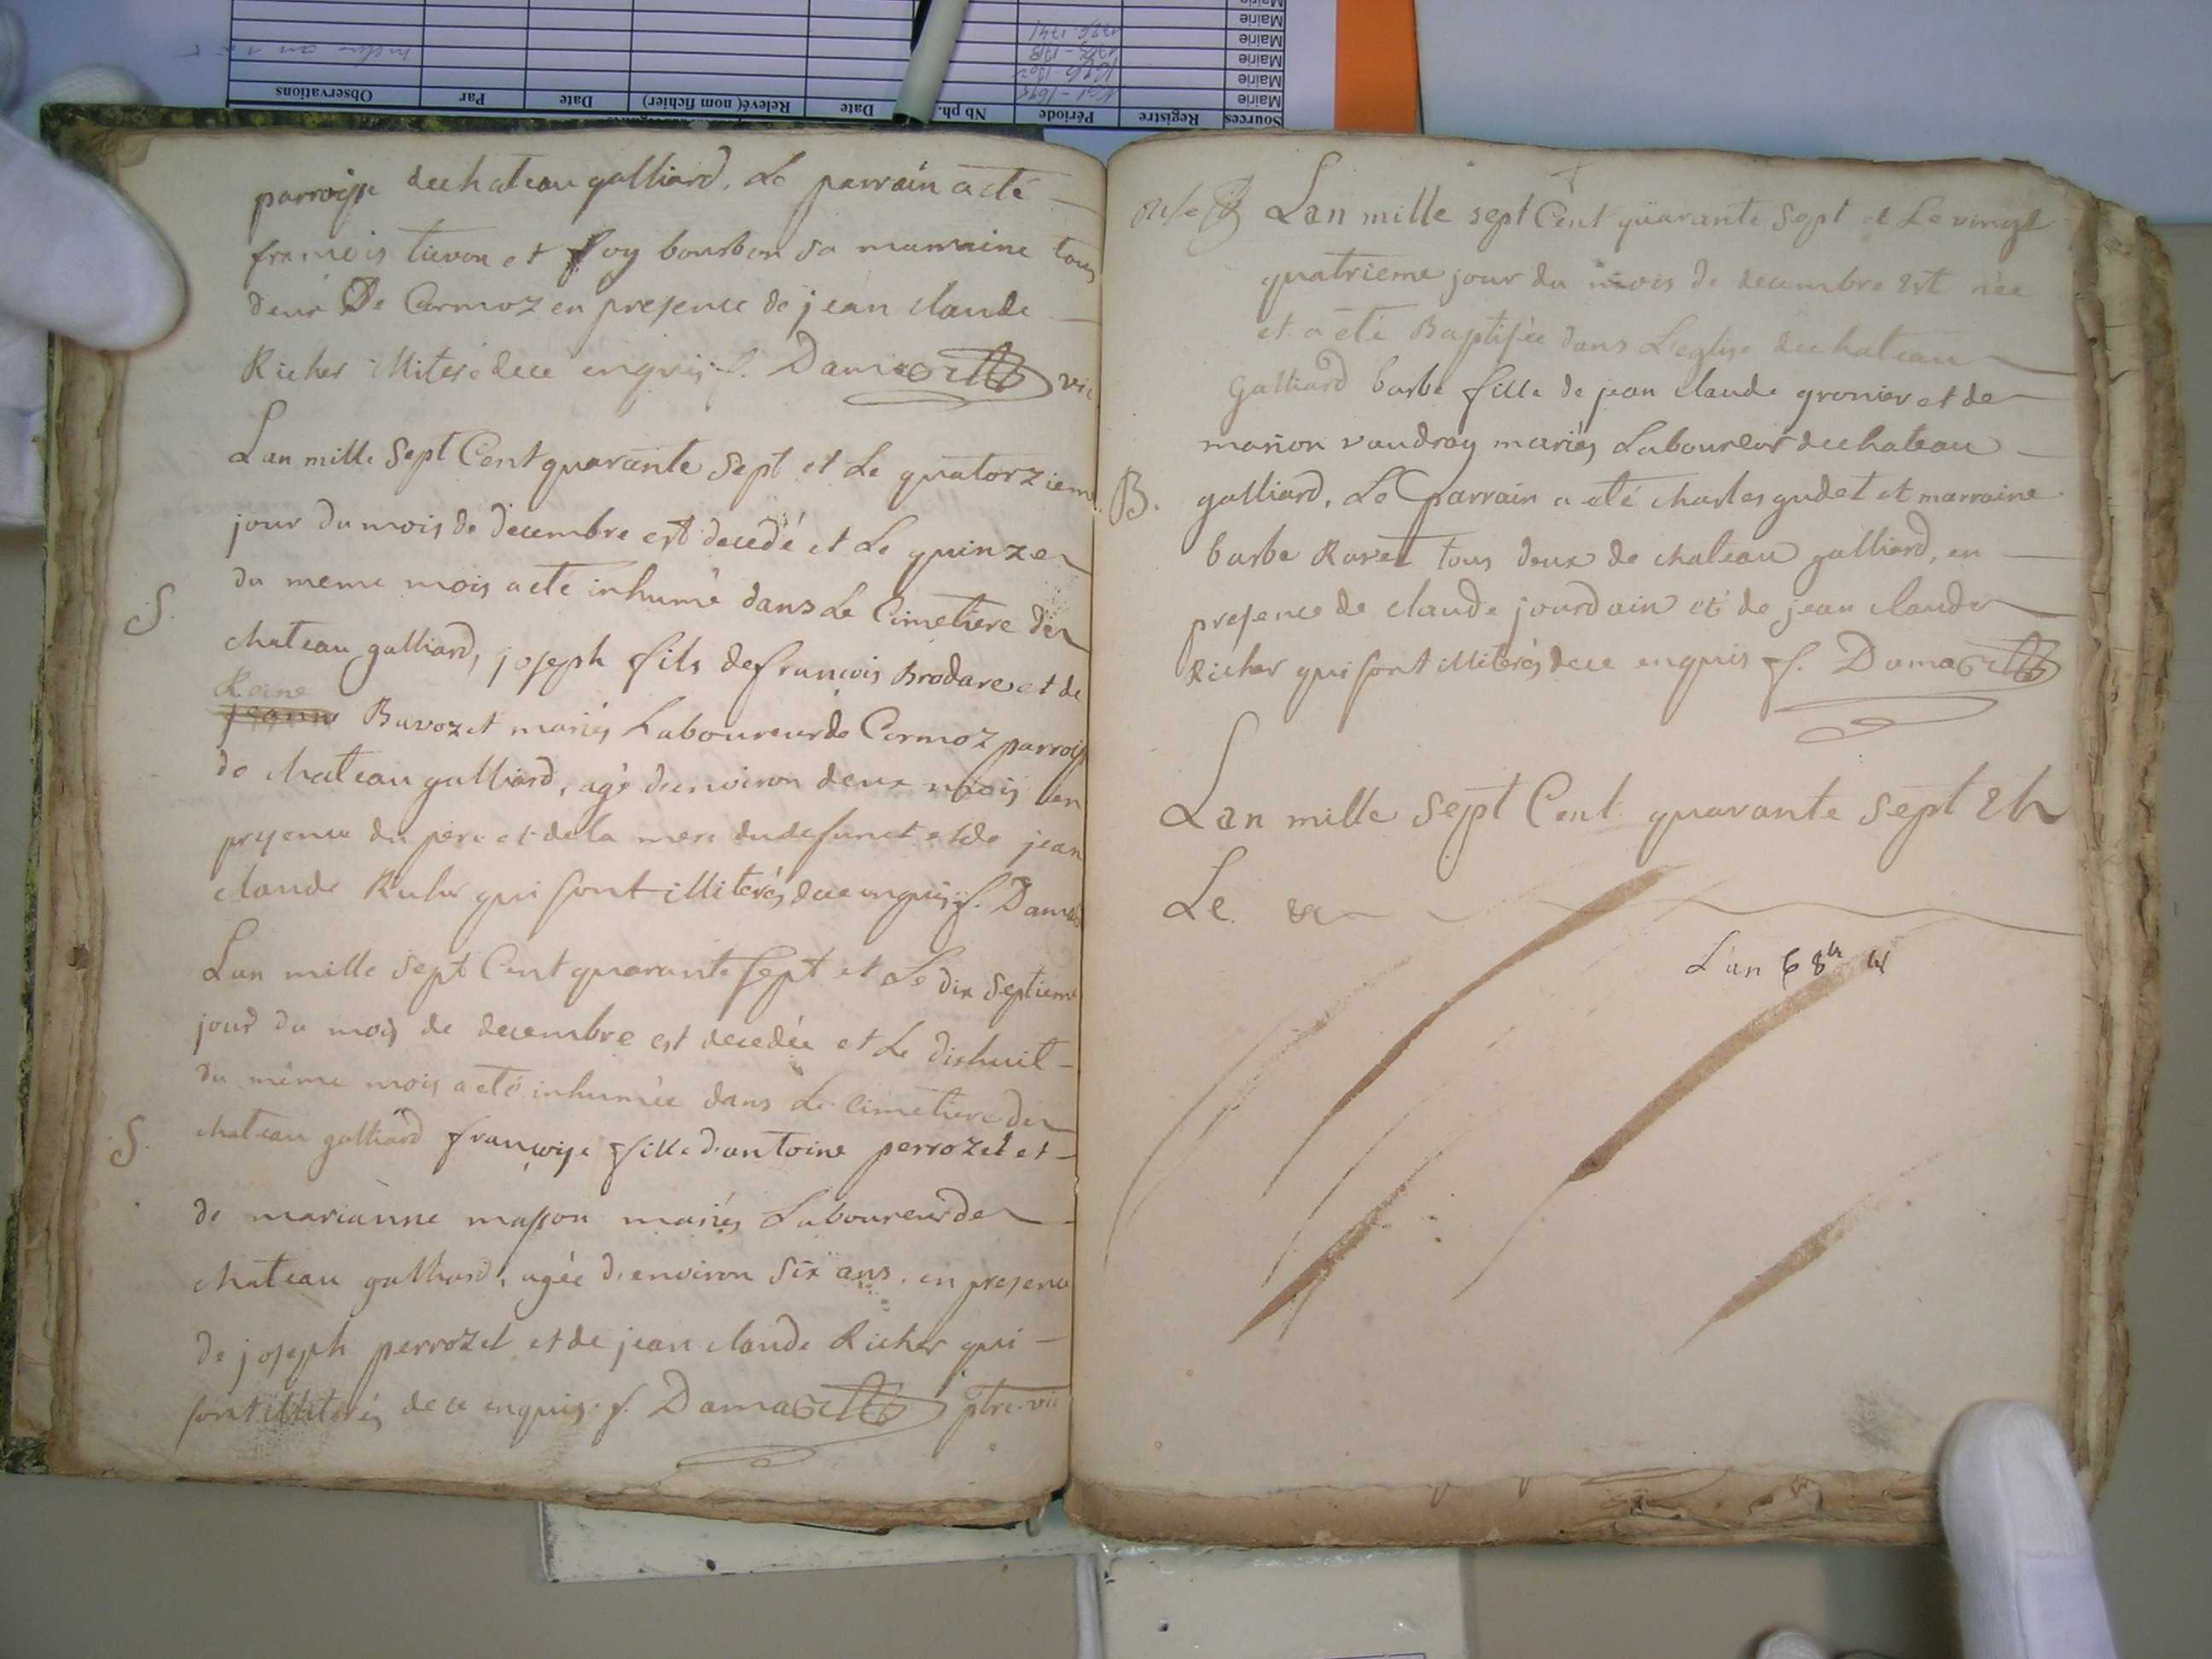 Sources Registre Période Nb ph. Date Relevé( nom fichier) Date Par Observations
Mairie
Mairie
Mairie
Mairie
Mairie
parroisse dechateau galliard. Le parrain a eté
francois tievon et foy bourbon sa marraine tous
deux De Cormoz en presence de jean claude
Richer illiteré dece enquis f. Damas vic
Lan mille Sept Cent quarante Sept et Le quatorzieme
jour du mois de decembre est decedé et Le quinze
du meme mois a eté inhumé dans Le Cimetiere de
S. chateau galliard, joseph fils de francois Brodare et de
Reine
jeanne Buvozet mariés Laboureur de Cormoz parroisse
de chateau galliard, agé denviron deux mois en
presence du pere et de la mere du defunct et de jean
claude Richer qui sont illiterés dece enquis f. Damas
Lan mille Sept Cent quarante Sept et Le dix Septieme
jour du mois de decembre est decedée et Le dixhuit
du même mois a eté inhumée dans Le Cimetiere de
S. chateau galliard francoise fille d'antoine perrozet et
de marianne masson mariés Laboureur de
chateau galliard, agée d'environ Six ans. en presence
de joseph perrozet et de jean claude Richer qui
sont illiterés dece enquis. f. Damas ptre. vic
Lan mille sept Cent quarante Sept et Le vingt
quatrieme jour du mois de decembre Est née
et a eté Baptisée dans L'eglise dechateau
Galliard barbe fille de jean claude gronier et de
manon vaudray mariés Laboureur dechateau
B. galliard. Le parrain a eté charles gudet et marraine
barbe Ravet tous deux de chateau galliard, en
presence de claude jourdain et de jean claude
Richer qui sont illiterés dece enquis f. Damas
Lan mille Sept Cent quarante Sept Et
Le
L'an 68